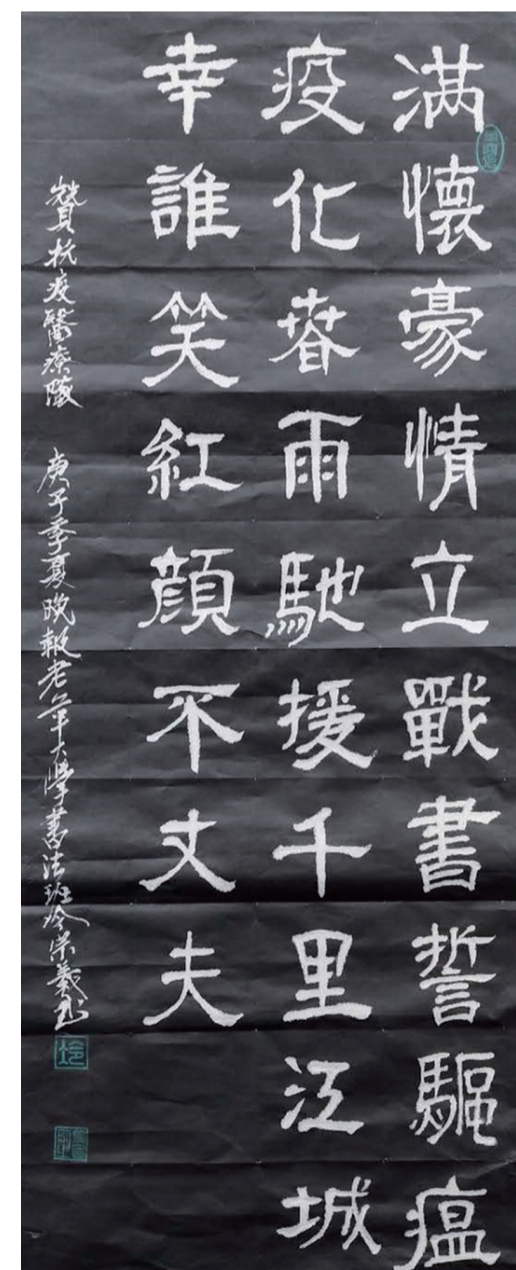 满懷豪情立戰書誓驅瘟
疫化春雨馳援千里江城
幸誰笑紅顏不丈夫
贊抗疫醫療隊 庚子季夏晚報老年大學書法班冷榮義书